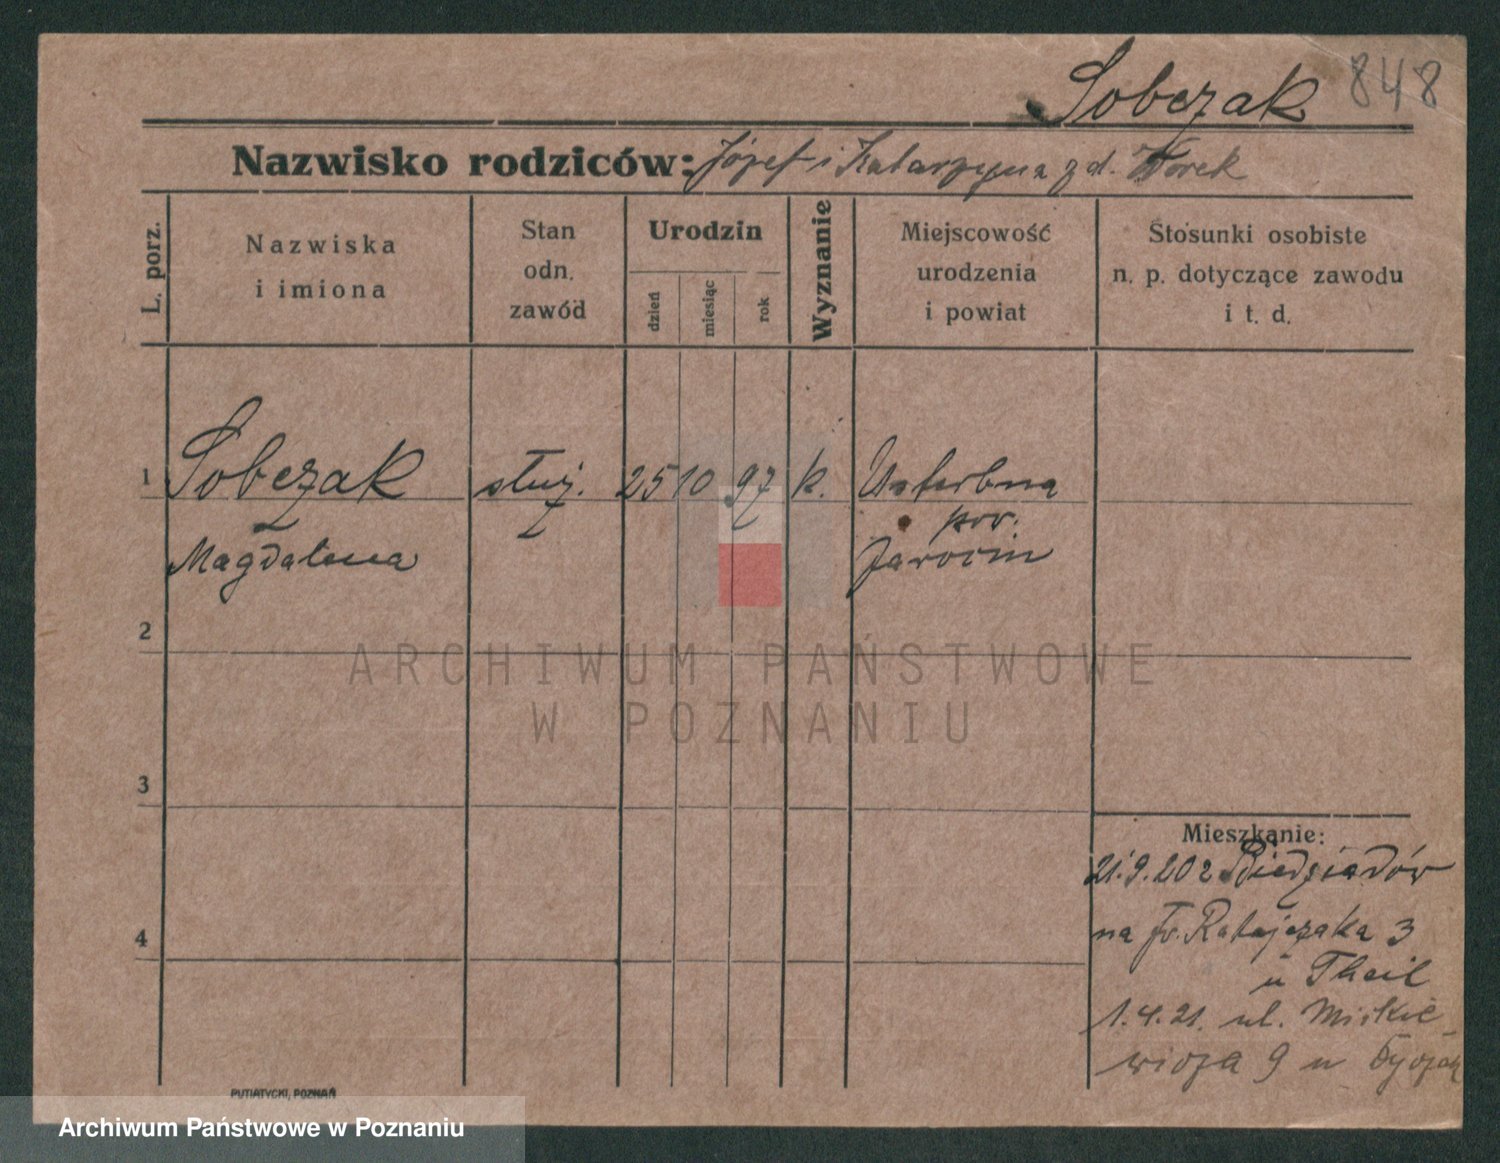 Sobczak 848
Nazwisko rodziców: Józef i Katarzyna z d. Worek
L. porz.
Nazwiska
i imiona
Stan
odn.
zawód
Urodzin
dzień
miesiąc
rok
Wyznanie
Miejscowość
urodzenia
i powiat
Stosunki osobiste
n. p. dotyczące zawodu
i t. d.
1 Sobczak służ. 25 10. 97 k.
pow.
Magdalena Jarocin
2
ARCHIWUM PAŃSTWOWE
W POZNANIU
3
Mieszkanie:
21.9.20 z
4 na Fr. Ratajczaka 3
u Theil
1.4.21. ul. Mickie
wicza 9 u
PUTIATYCKI, POZNAŃ
Archiwum Państwowe w Poznaniu